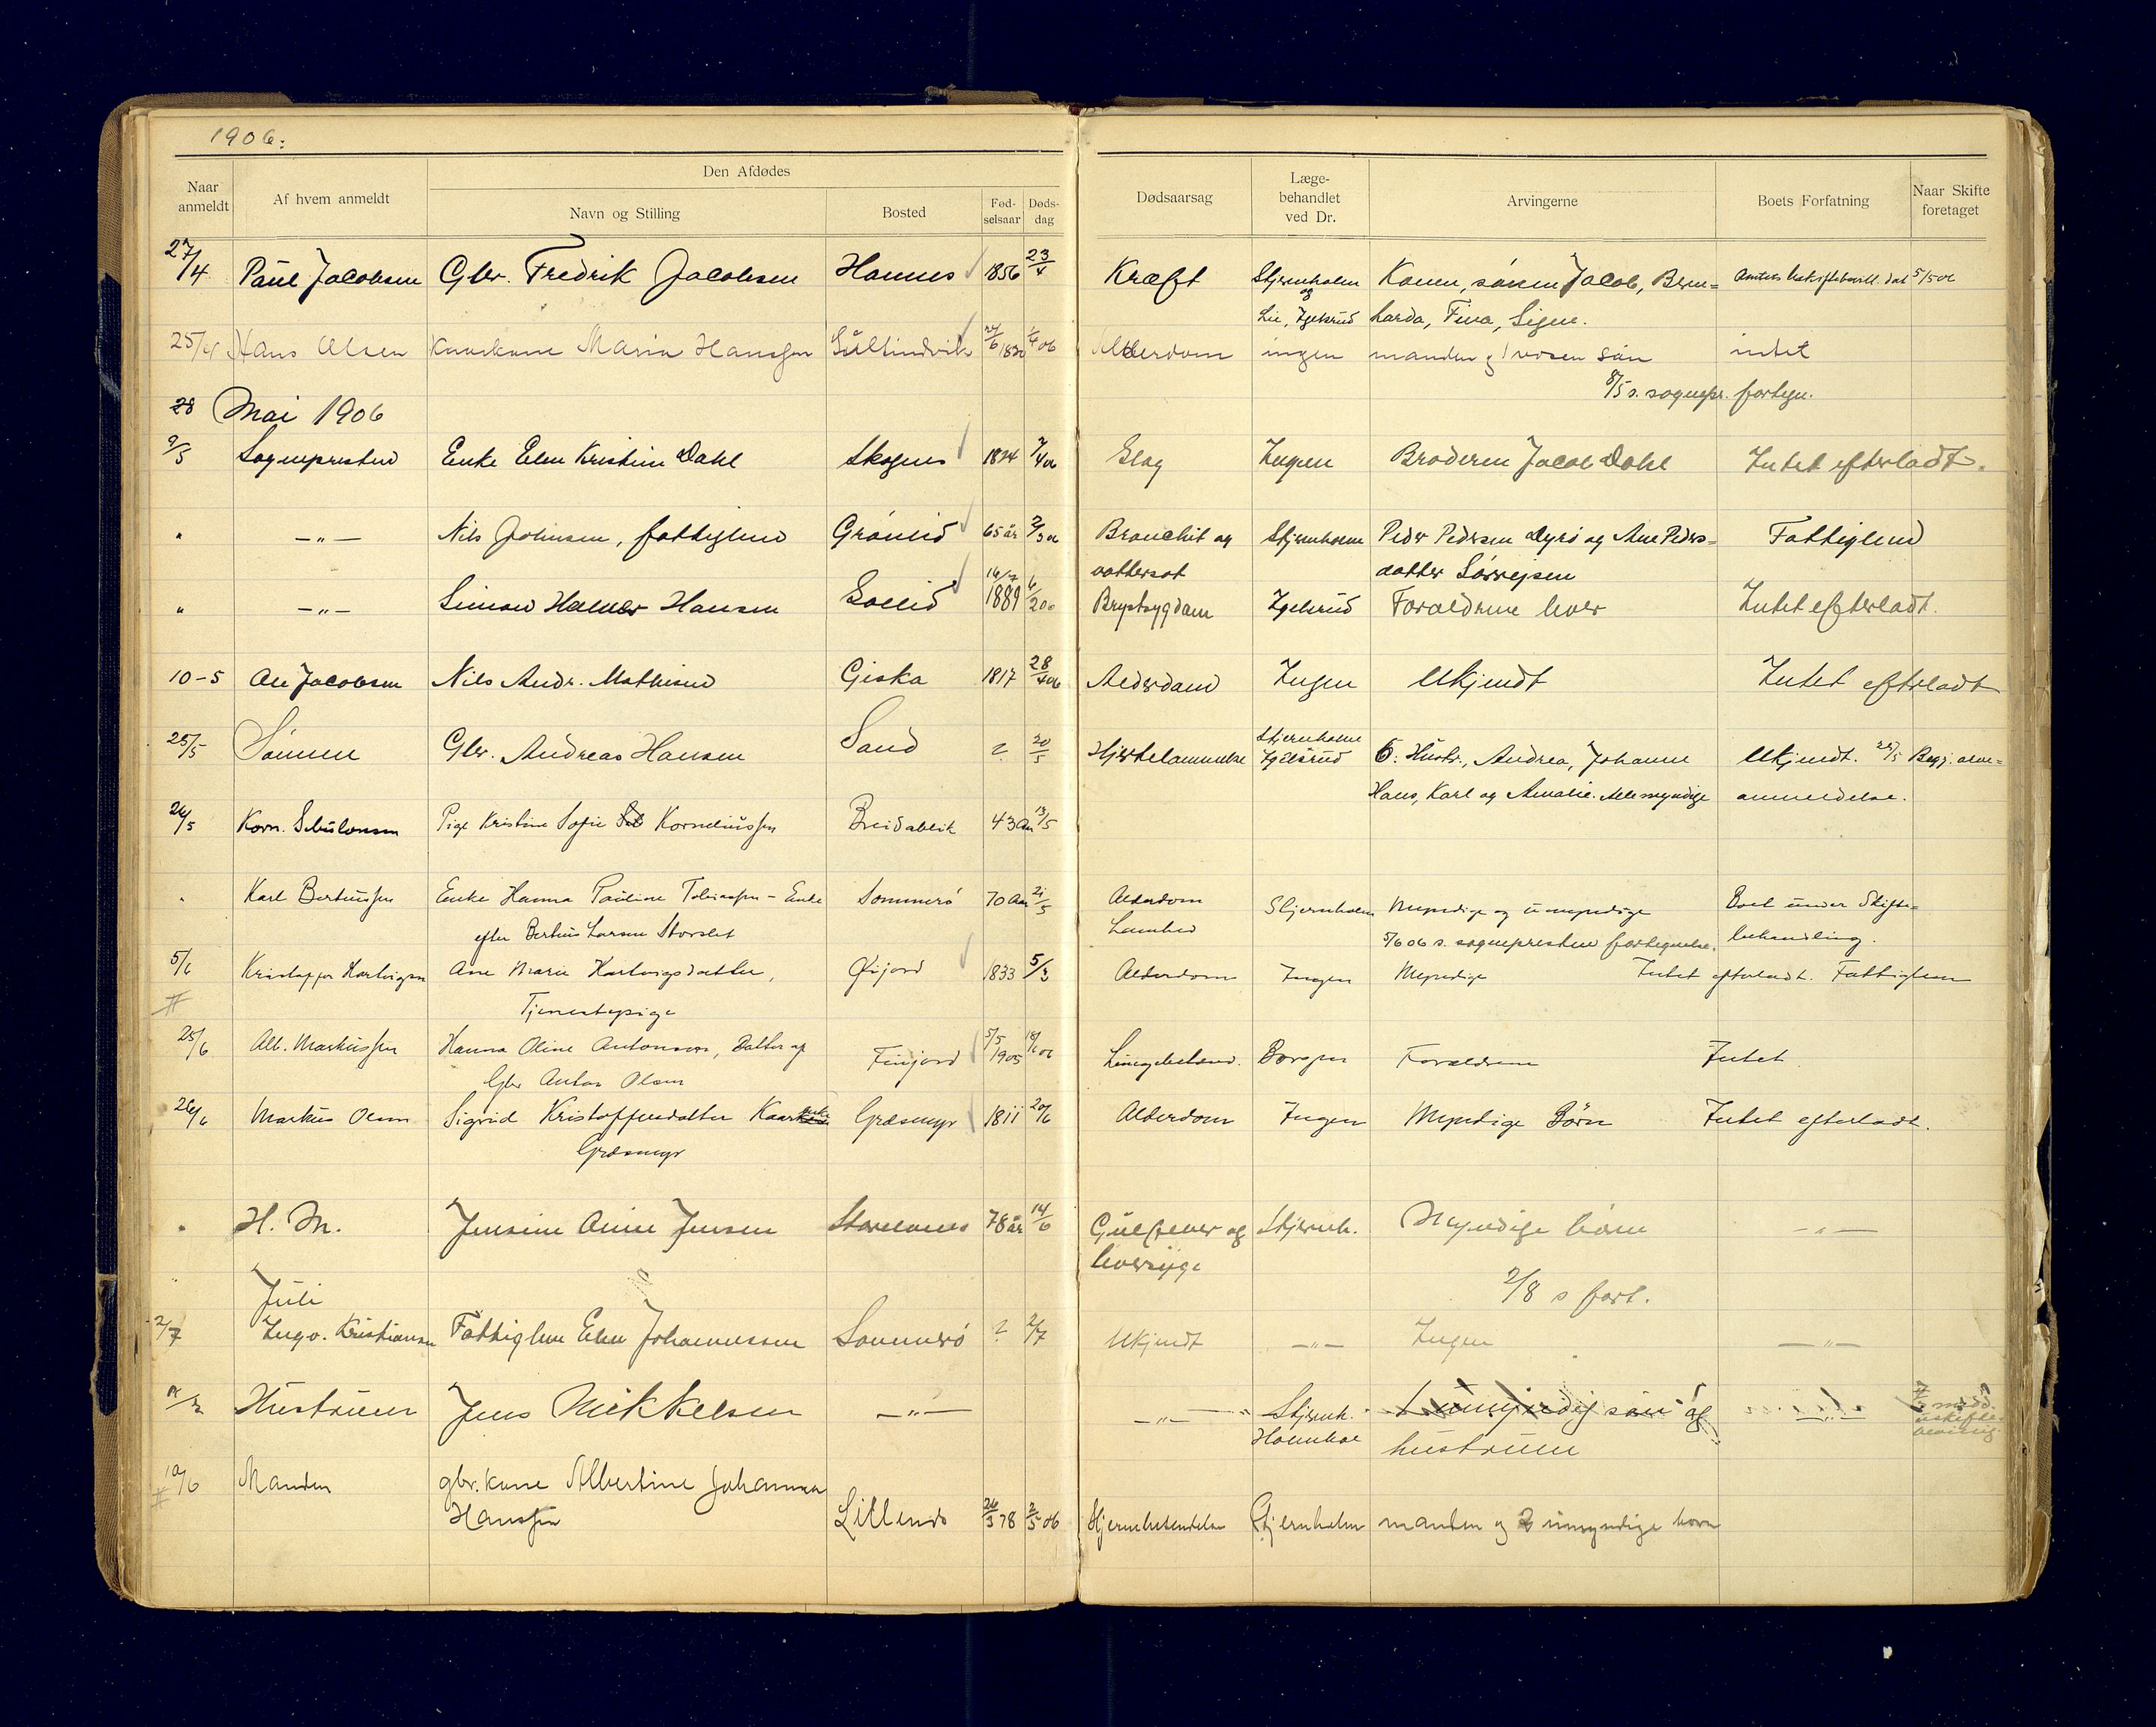 1906.
Naar anmeldt
Af hvem anmeldt
Den Afdødes
Navn og Stilling
Bosted
Fød-selsaar
Døds-dag
Dødsaarsag
Læge-behandlet ved Dr.
Arvingerne
Boets Forfatning
Naar Skifte foretaget
27/4 Paul Jacobsen Gbr. Fredrik Jacobsen Hannes 1856 23/4 Kræft Stjernholm Konen, sønnen Jacob, Bern= 5/5 06
og
Lie, Igelsrud harda, Fina, Signe.
25/4 Hans Olsen Kaarkone Maria Hanssen Sultindvik 24/6 1820 1/4 06 Alderdom ingen manden og 1 voxen søn intet
8/5 s. sognepr. fortegn.
28 Mai 1906
9/5 Sognepresten Enke Elen Kristine Dahl Skognes 1824 7/4 06 Slag Ingen Broderen Jacob Dahl Intet efterladt.
" —"— Nils Johnsen, fattiglem Grönlid 65 år 2/3 06 Bronchit og Stjernholm Peder Pedersen Dyrö og Ane Peders=
Fattiglem
vattersot datter Sörrejsen
" —"— Simon Halmer Hansen Sollid 16/7 1889 6/2 06 Brystsygdom Igelsrud Forældrene lever Intet efterladt.
10-5 Ole Jacobsen Nils Andr. Mathisen Giska 1817 28/4 06 Alderdom Ingen Ukjendt Intet efterladt
25/5 Sønnen Gbr. Andreas Hansen Sand ? 20/5 Hjertelammelse Stjernholm
Igelsrud 6: Hustr., Andrea, Johanne Ukjendt. 25/5 Begj.
Hans, Karl og Amalie. Alle myndige anmeldelse.
26/5 Korn. Sebulonsen Pige Kristine Sofie Korneliussen Breidablik 43 Aar 13/5
" Karl Bertiussen Enke Hanna Pauline Tobiassen – Enke Sommerö 70 Aar 21/5 Alderdom Stjernholm Myndige og umyndige Boet under Skifte=
efter Bertius Larsen Storslet 5/6 06 s. sognepresten fortegnelse. behandling.
5/6 Kristoffer Hartvigsen Ane Marie Hartvigsdatter, Øijord 1833 5/3 Alderdom Ingen Myndige Intet efterladt. Fattiglem
Tjenestepige
25/6 Alb. Markussen Hanna Oline Antonsen, Datter af Finjord 5/5 1905 18/6 06 Lungebetænd. Borgen Forældrene Intet
Gbr Anton Olsen
26/6 Markus Olsen Sigrid Kristoffersdatter Kaarenke Græsmyr 1811 20/6 Alderdom Ingen Myndige Börn Intet efterladt.
Græsmyr
" H. M. Jensine Anne Jensen 78 år 14/6 Gulfeber og Stjernh. Myndige børn —"—
leversyge
2/8 s fort.
Juli
2/7 Ingv. Kristiansen Fattiglem Elen Johannessen Sommerö ? 2/7 Ukjendt —"— Ingen —"—
Hustruen Jens Mikkelsen —"— —"— Stjernh. 1 umyndig søn og
hustruen
10/6 Manden gbr.kone Albertine Johanna
Hanssen Lillenes 26/3 78 2/5 06 Hjernebetændelse Stjernholm manden og 2 umyndige børn